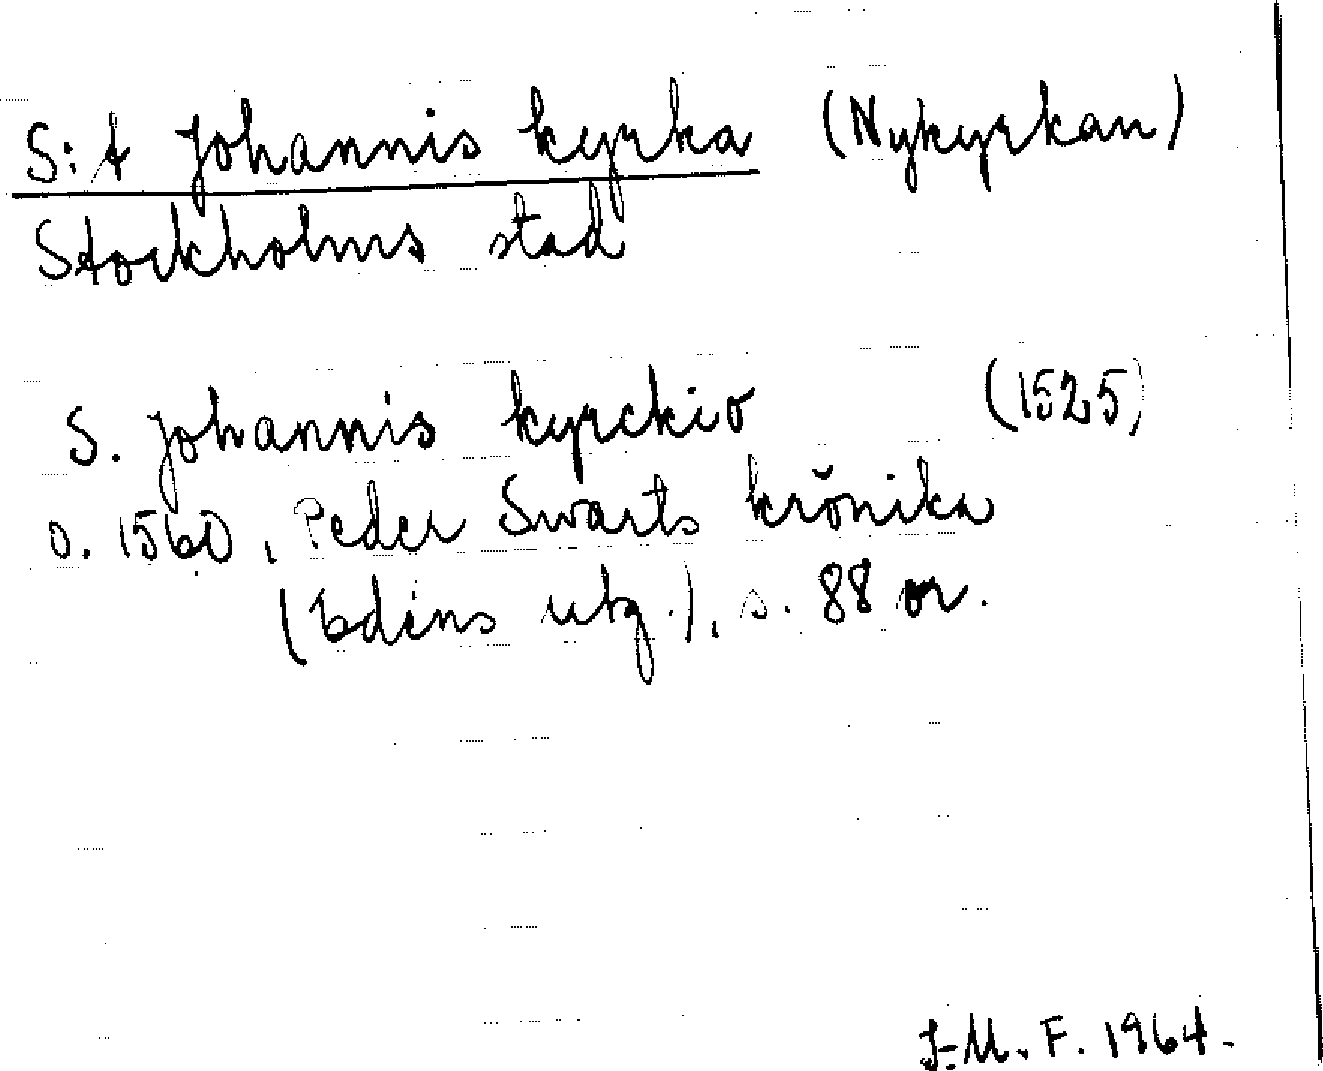 S:t Johannis kyrka (Nykyrkan)
Stockholms stad
S. Johannis kyrckio (1525)
o. 1560, Peder Swarts krönika
(Edéns utg.), s. 88 or.
I-M. F. 1964.